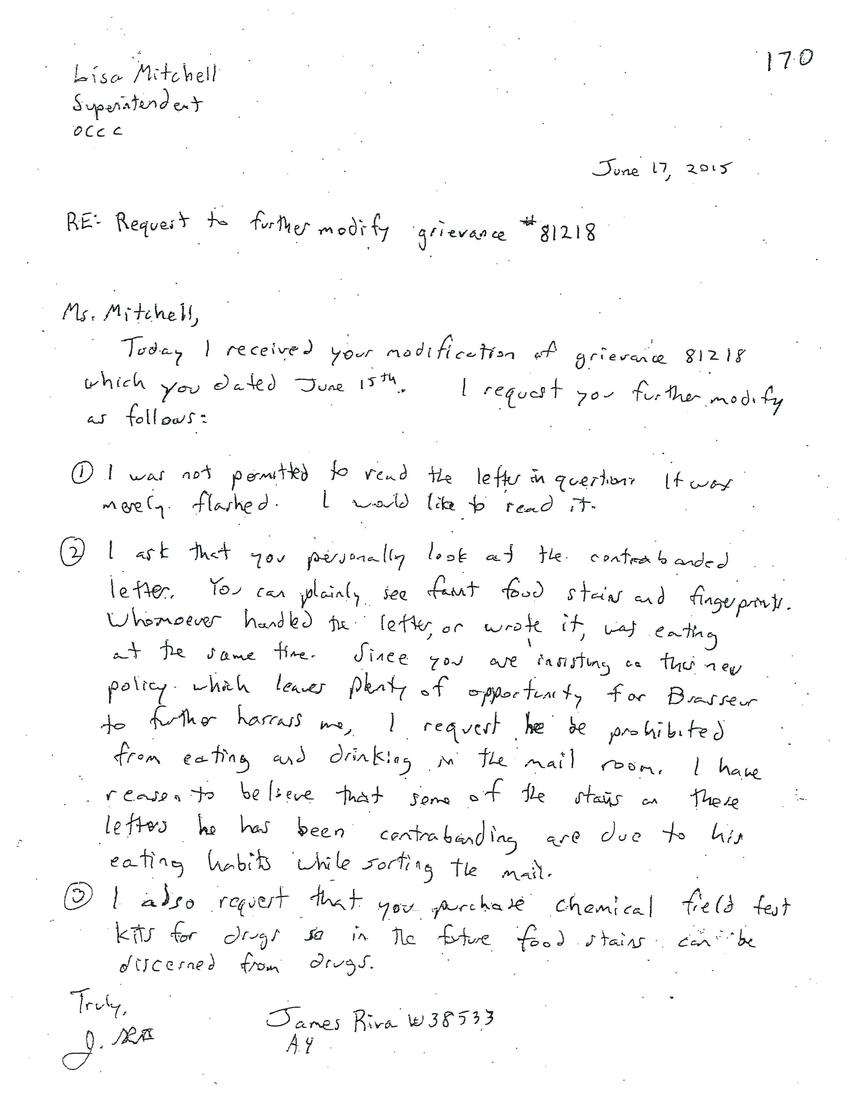 170
Lisa Mitchell
Superintendent
OCCC
June 17, 2015
RE: Request to further modify grievance #81218
Ms. Mitchell,
Today I received your modification of grievance 81218
which you dated June 15th. I request you further modify
as follows:
① I was not permitted to read the letter in question. It was
merely flashed. I would like to read it.
② I ask that you personally look at the contrabanded
letter. You can plainly see faint food stains and fingerprints.
Whomoever handled the letter, or wrote it, was eating
at the same time. Since you are insisting on this new
policy which leaves plenty of opportunity for Brasseur
to further harrass me, I request he be prohibited
from eating and drinking in the mail room. I have
reason to believe that some of the stains on these
letters he has been contrabanding are due to his
eating habits while sorting the mail.
③ I also request that you purchase chemical field test
kits for drugs so in the future food stains can be
discerned from drugs.
Truly,
James Riva W38533
A4
J.